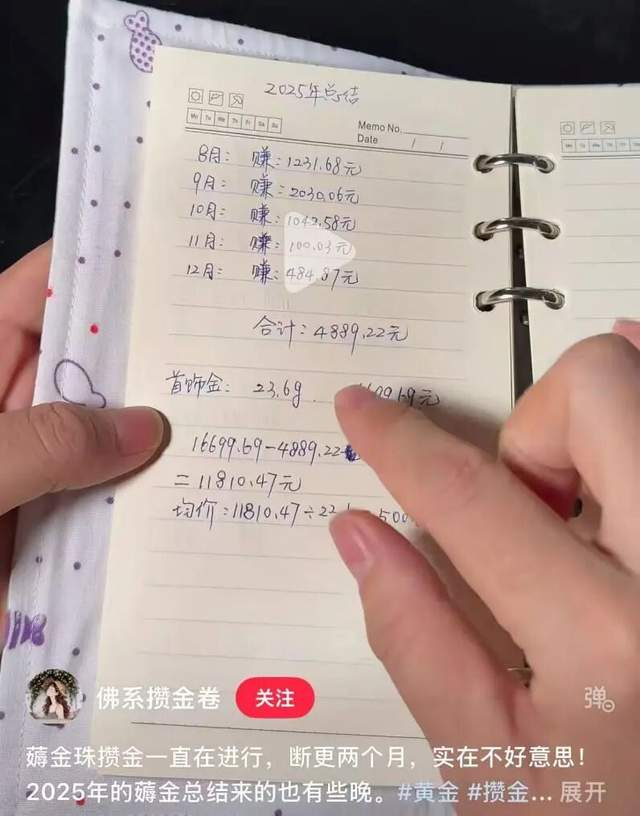 2025年总结
Mo Tu We Th Fr Sa Su
Memo No.
Date / /
8月: 赚:1231.68元
9月: 赚:2030.06元
10月: 赚:1042.58元
11月: 赚:100.03元
12月: 赚:484.87元
合计:4889.22元
首饰金: 23.6g
699.69元
16699.69-4889.22
=11810.47元
均价:11810.47÷2
500
佛系攒金卷
关注
弹
薅金珠攒金一直在进行，断更两个月，实在不好意思！
2025年的薅金总结来的也有些晚。#黄金 #攒金... 展开